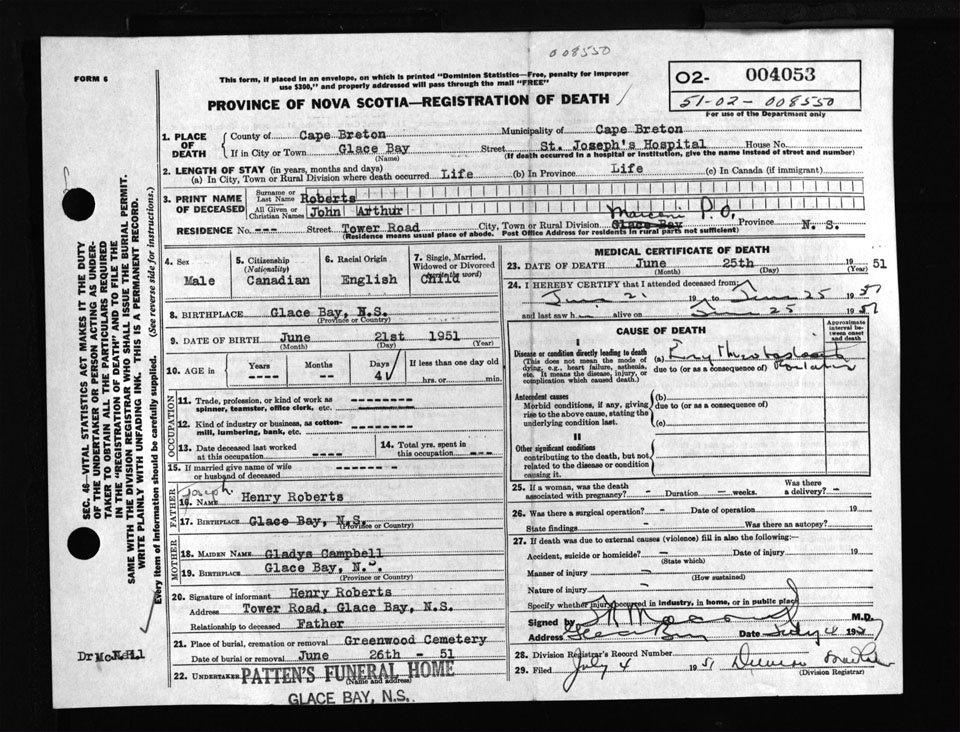 008550
FORM 6
This form, if placed in an envelope, on which is printed "Dominion Statistics—Free, penalty for improper
use $300," and properly addressed will pass through the mail "FREE"
PROVINCE OF NOVA SCOTIA—REGISTRATION OF DEATH
O2- 004053
51-02-008550
For use of the Department only
1. PLACE OF DEATH
County of Cape Breton Municipality of Cape Breton
If in City or Town Glace Bay Street St. Joseph's Hospital House No.
(Name) (If death occurred in a hospital or institution, give the name instead of street and number)
2. LENGTH OF STAY (in years, months and days)
(a) In City, Town or Rural Division where death occurred Life (b) In Province Life (c) In Canada (if immigrant)
3. PRINT NAME OF DECEASED
Surname or Last Name Roberts
All Given or Christian Names John Arthur
Marconi P.O.
RESIDENCE No. --- Street Tower Road City, Town or Rural Division Glace Bay Province N. S.
(Residence means usual place of abode. Post Office Address for residents in rural parts not sufficient)
4. Sex Male
5. Citizenship (Nationality) Canadian
6. Racial Origin English
7. Single, Married, Widowed or Divorced (write the word) Child
8. BIRTHPLACE Glace Bay, N.S.
(Province or Country)
9. DATE OF BIRTH June 21st 1951
(Month) (Day) (Year)
10. AGE in Years ---- Months -- Days 4 If less than one day old
hrs. or min.
OCCUPATION
11. Trade, profession, or kind of work as
spinner, teamster, office clerk, etc. --------
12. Kind of industry or business, as cotton-
mill, lumbering, bank, etc. --------
13. Date deceased last worked
at this occupation ----
14. Total yrs. spent in
this occupation ---
15. If married give name of wife
or husband of deceased -------
FATHER
Joseph
16. NAME Henry Roberts
17. BIRTHPLACE Glace Bay, N.S.
(Province or Country)
MOTHER
18. MAIDEN NAME Gladys Campbell
19. BIRTHPLACE Glace Bay, N.S.
(Province or Country)
20. Signature of informant Henry Roberts
Address Tower Road, Glace Bay, N.S.
Relationship to deceased Father
21. Place of burial, cremation or removal Greenwood Cemetery
Date of burial or removal June 26th - 51
22. UNDERTAKER PATTEN'S FUNERAL HOME
(Name and address)
GLACE BAY, N.S.
MEDICAL CERTIFICATE OF DEATH
23. DATE OF DEATH June 25th 19 51
(Month) (Day) (Year)
24. I HEREBY CERTIFY that I attended deceased from
June 21 19 to June 25 1951
and last saw him alive on June 25 1951
CAUSE OF DEATH
Approximate interval between onset and death
I
Disease or condition directly leading to death
(This does not mean the mode of
dying, e.g., heart failure, asthenia,
etc. It means the disease, injury, or
complication which caused death.)
(a)
due to (or as a consequence of)
Antecedent causes
Morbid conditions, if any, giving
rise to the above cause, stating the
underlying condition last.
(b)
due to (or as a consequence of)
(c)
II
Other significant conditions
contributing to the death, but not
related to the disease or condition
causing it.
25. If a woman, was the death
associated with pregnancy? - Duration — weeks. Was there
a delivery? -
26. Was there surgical operation? - Date of operation 19
State findings - Was there an autopsy?
27. If death was due to external causes (violence) fill in also the following:—
Accident, suicide or homicide? — Date of injury 19
(State which)
Manner of injury -
(How sustained)
Nature of injury -
Specify whether injury occurred in industry, in home, or in public place
Signed by M.D.
Address Glace Bay Date July 4 1951
28. Division Registrar's Record Number
29. Filed July 4 1951
(Division Registrar)
SEC. 46—VITAL STATISTICS ACT MAKES IT THE DUTY
OF THE UNDERTAKER OR PERSON ACTING AS UNDER-
TAKER TO OBTAIN ALL THE PARTICULARS REQUIRED
IN THE "REGISTRATION OF DEATH" AND TO FILE THE
SAME WITH THE DIVISION REGISTRAR WHO SHALL ISSUE THE BURIAL PERMIT.
WRITE PLAINLY WITH UNFADING INK. THIS IS A PERMANENT RECORD.
Every item of information should be carefully supplied. (See reverse side for instructions.)
Dr